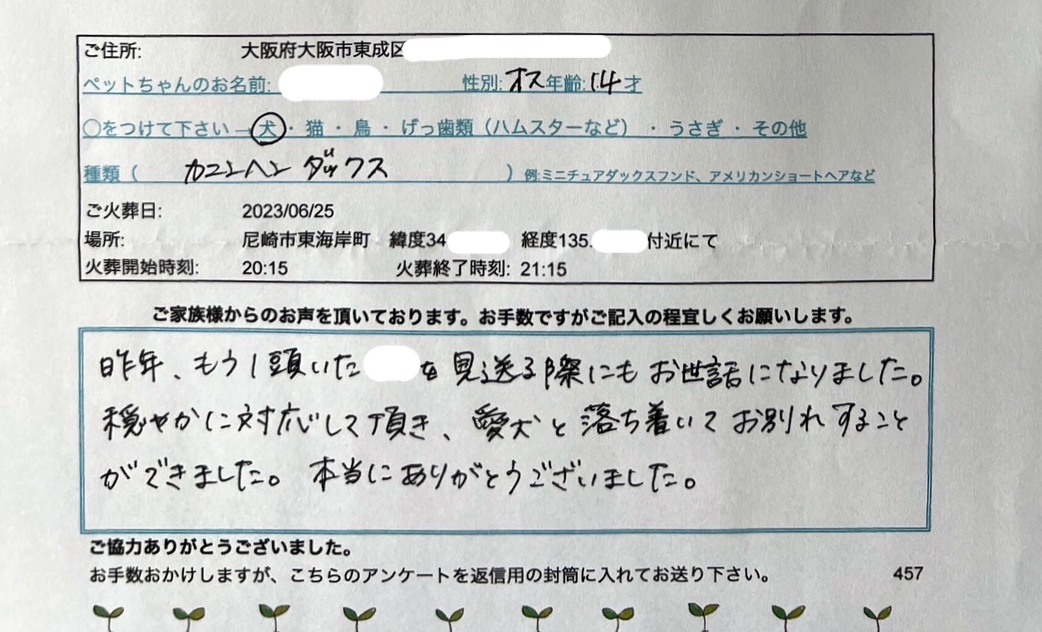 ご住所: 大阪府大阪市東成区
ペットちゃんのお名前: 性別: オス 年齢: 14 才
〇をつけて下さい→ 犬 ・ 猫 ・ 鳥 ・ げっ歯類（ハムスターなど） ・ うさぎ ・ その他
種類（ カニンヘンダックス ）例:ミニチュアダックスフンド、アメリカンショートヘアなど
ご火葬日: 2023/06/25
場所: 尼崎市東海岸町 緯度34 経度135. 付近にて
火葬開始時刻: 20:15 火葬終了時刻: 21:15
ご家族様からのお声を頂いております。お手数ですがご記入の程宜しくお願いします。
昨年、もう1頭いた を見送る際にもお世話になりました。
穏やかに対応して頂き、愛犬と落ち着いてお別れすること
ができました。本当にありがとうございました。
ご協力ありがとうございました。
お手数おかけしますが、こちらのアンケートを返信用の封筒に入れてお送り下さい。 457